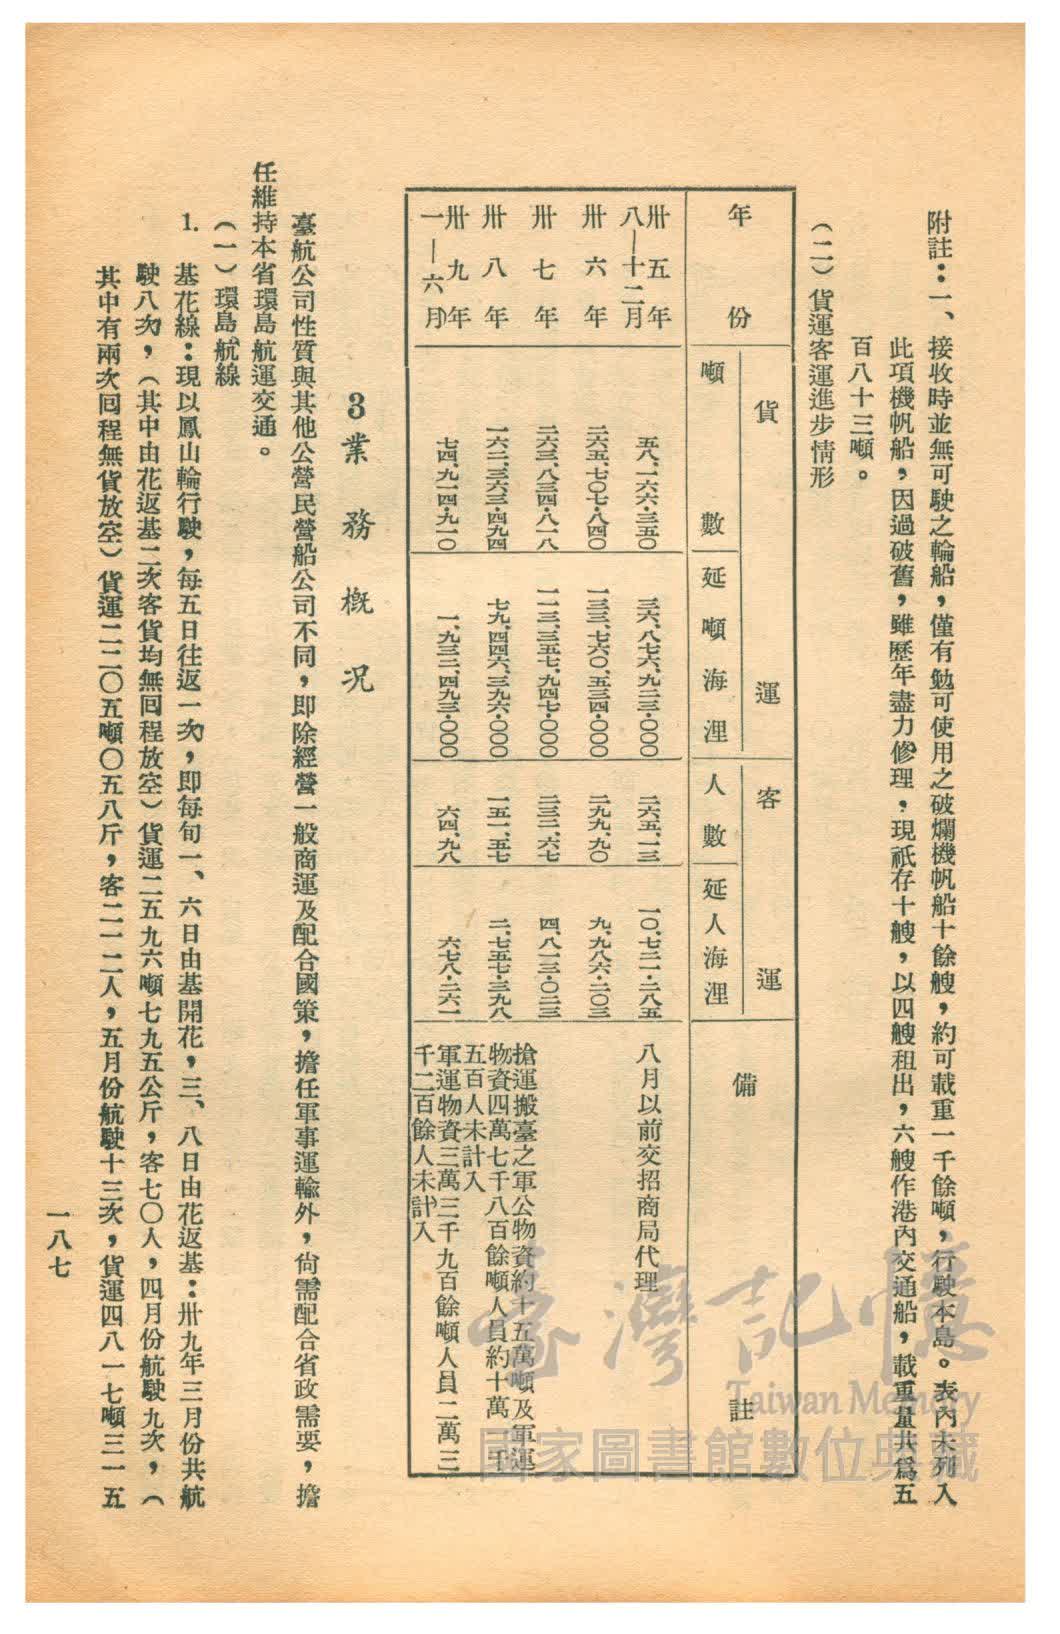 附註：一、接收時並無可駛之輪船，僅有勉可使用之破爛機帆船十餘艘，約可載重一千餘噸，行駛本島。表內未列入
此項機帆船，因過破舊，雖歷年盡力修理，現祇存十艘，以四艘租出，六艘作港內交通船，載重量共爲五
百八十三噸。
（二）貨運客運進步情形
年份　貨運　噸數　延噸海浬　客運　人數　延人海浬　備註
卅五年八—十二月　五八、一六六·三五〇　三六、八七六、九二三·〇〇〇　二六五、一三　一〇、七三一·二八五　八月以前交招商局代理
卅六年　二六五、七〇七·八四〇　一三三、七六〇、五三四·〇〇〇　二九九、九〇　九、九八六·二〇三
卅七年　二六三、八三四·八一八　一一三、三五七、九四七·〇〇〇　二三二、六七　四、八一三·〇二三
卅八年　一六二、三六三·四九四　七九、四四六、三九六·〇〇〇　一五一、五七　二、七五七·三九八　搶運搬臺之軍公物資約十五萬噸及軍運
物資四萬七千八百餘噸人員約十萬二千
五百人未計入
卅九年一—六月　七四、九一四·九一〇　一、九三二、四九三·〇〇〇　六四、九八　六七八·二六一　軍運物資三萬三千九百餘噸人員二萬三
千二百餘人未計入
3業務概況
臺航公司性質與其他公營民營船公司不同，即除經營一般商運及配合國策，擔任軍事運輸外，尙需配合省政需要，擔
任維持本省環島航運交通。
（一）環島航線
1.基花線：現以鳳山輪行駛，每五日往返一次，即每旬一、六日由基開花，三、八日由花返基：卅九年三月份共航
駛八次，（其中由花返基二次客貨均無回程放空）貨運二五九六噸七九五公斤，客七〇人，四月份航駛九次，（
其中有兩次回程無貨放空）貨運二二〇五噸〇五八斤，客二一二人，五月份航駛十三次，貨運四八一七噸三一五
一八七
臺灣記憶
Taiwan Memory
國家圖書館數位典藏